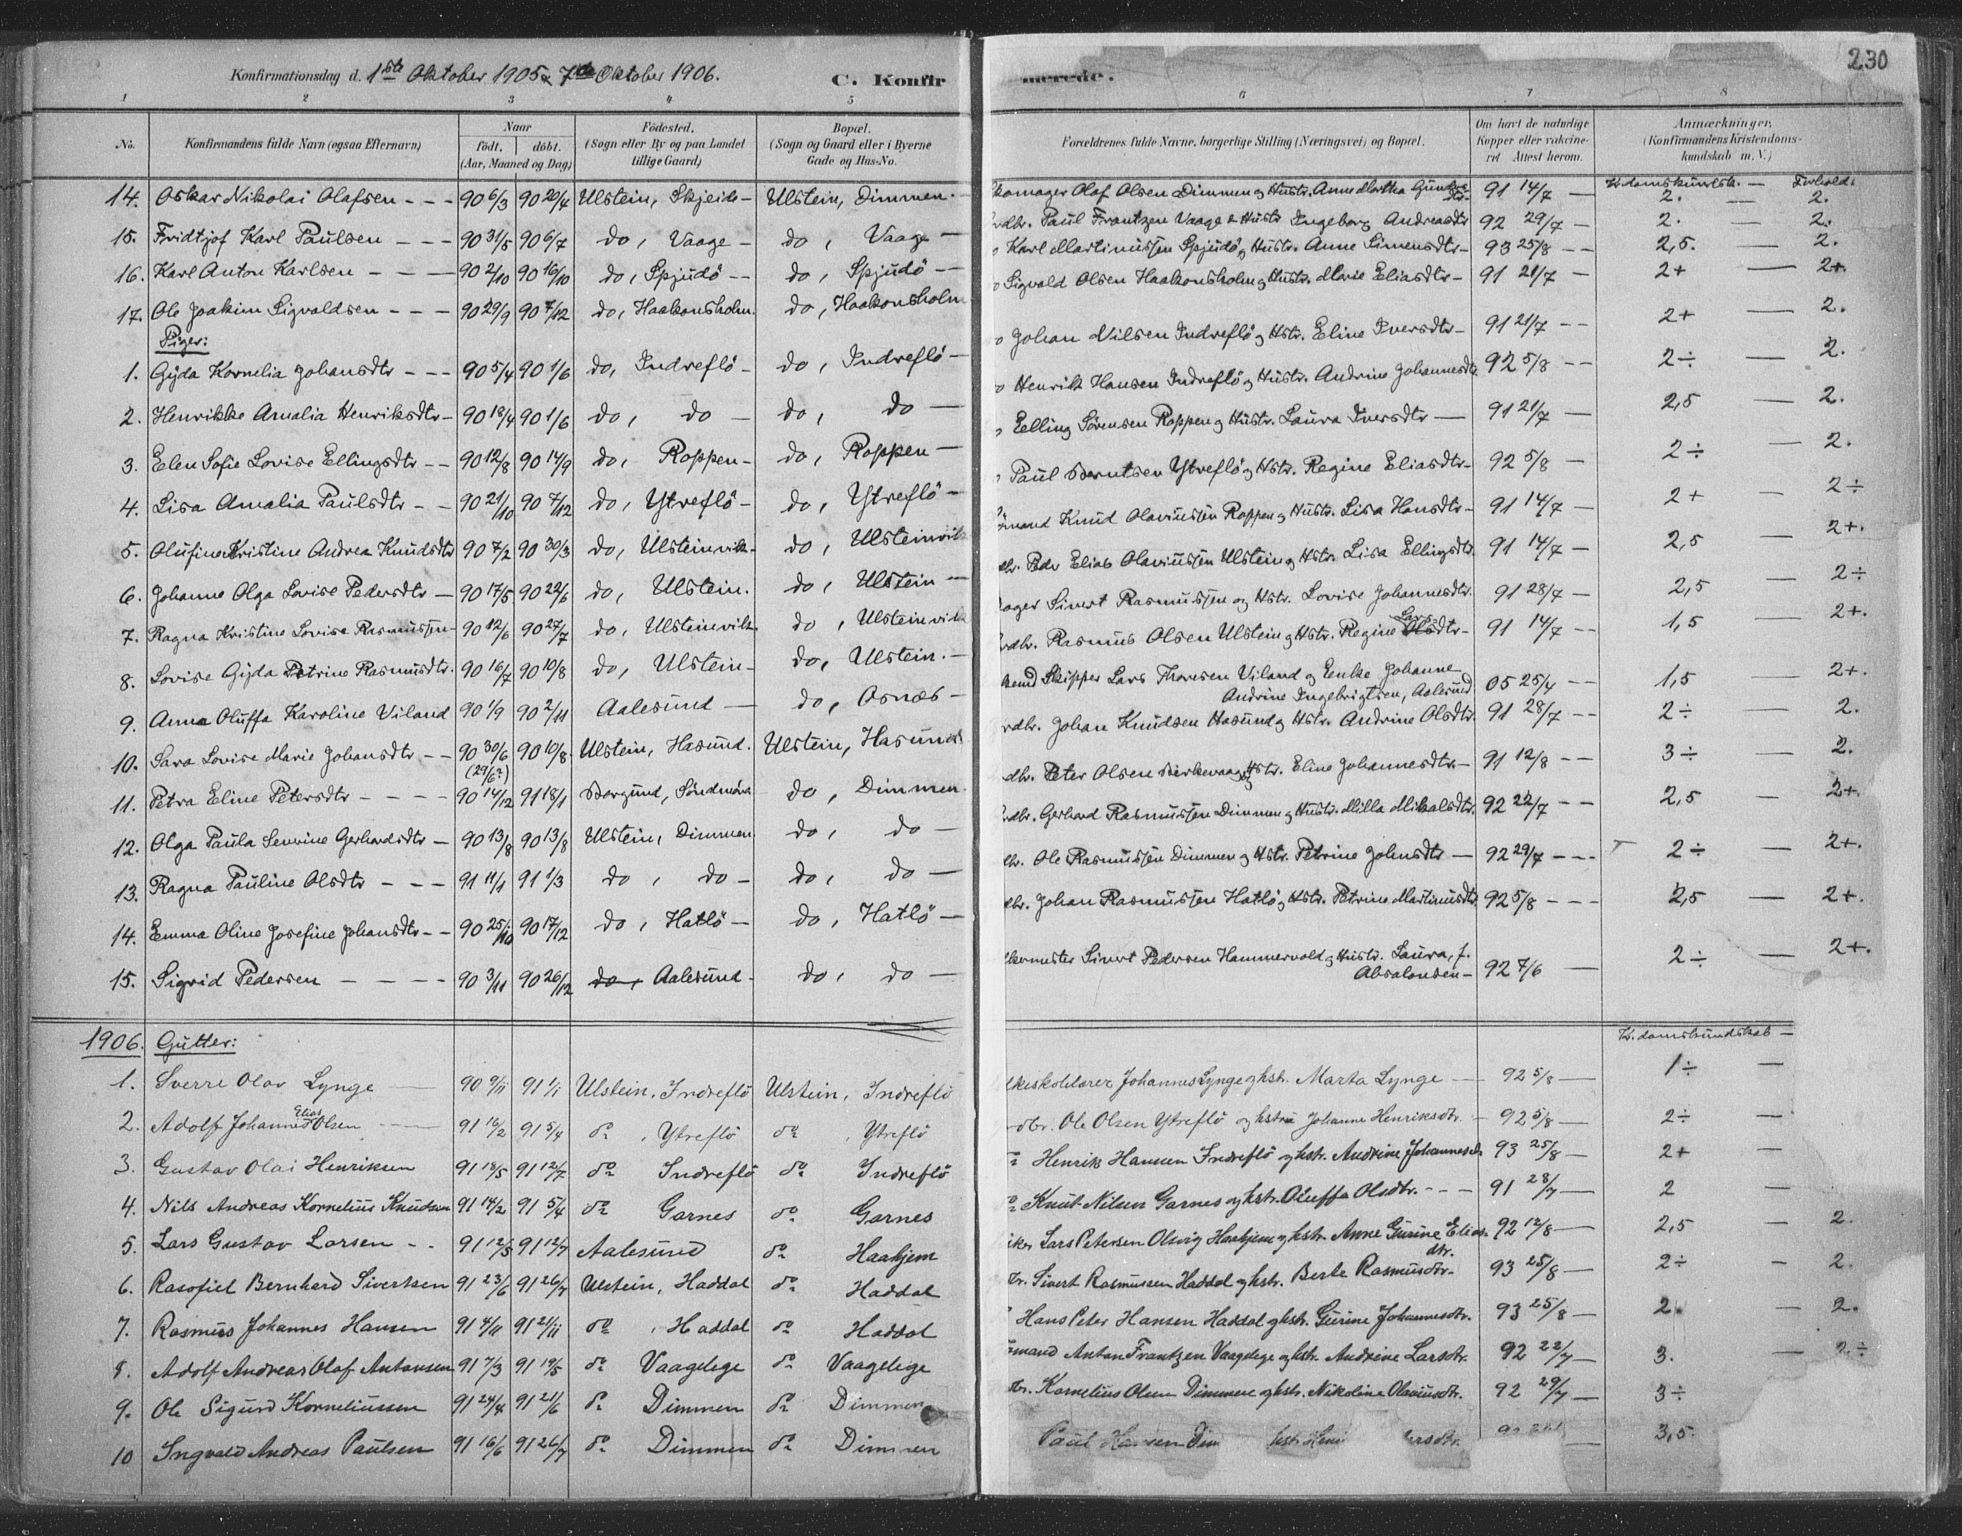 Konfirmationsdag d. 1ste Oktober 1905 & 7de Oktober 1906. C. Konfirmerede. 230
1 2 3 4 5 6 7 8
No. Konfirmandens fulde Navn (ogsaa Efternavn) Naar født, døbt. (Aar, Maaned og Dag) Fødested. (Sogn eller By og paa Landet tillige Gaard) Bopæl. (Sogn og Gaard eller i Byerne Gade og Hus-No. Forældrenes fulde Navne, borgerlige Stilling (Næringsvei) og Bopæl. Om havt de naturlige Kopper eller vaccineret Attest herom. Anmærkninger, (Konfirmandens Kristendomskundskab m. V.)
Kr.domskundsk. — Forhold:
14. Oskar Nikolai Olafsen - - - 90 6/3 90 20/4 Ulstein, Skjeide - Ulstein, Dimmen - Skomager Olof Olsen Dimmen og Hustr. Anne Martha 91 14/7 — 2. — 2.
15. Fridtjof Karl Paulsen - - - 90 31/5 90 6/7 do, Vaage - do, Vaage - Paul Frantzen Vaage & Hustr Ingeborg Andreasdtr 92 29/7 — 2. — 2.
16. Karl Anton Karlsen - - - 90 2/10 90 16/10 do, Spjudö - do, Spjudö - Karl Martinussen Spjudö og Hustr. Anne Simensdtr - 93 25/8 - 2,5. — 2.
17. Ole Joakim Sigvaldsen - - - 90 29/9 90 7/12 do, Haakonsholm. do, Haakonsholm Sigvald Olsen Haakonsholm og Hustr. Marie Eliasdtr - 91 21/7 - 2+ — 2+.
Piger:
1. Gyda Kornelia Johansdtr - - - 90 5/4 90 1/6 do, Indreflö - do, Indreflö - Johan Nilsen Indreflö og Hstr. Eline Iversdtr - 91 21/7 - - 2+ — 2.
2. Henrikke Amalia Henriksdtr - 90 18/4 90 1/6 do, do - do, do - Henrik Hansen Indreflö og Hustr. Andrine Johannesdtr 92 5/8 - - 2÷ — 2.
3. Eelen Sofie Lovise Ellingsdtr - - 90 12/8 90 14/9 do, Roppen - do, Roppen - Eelling Sörensen Roppen og Hustr. Laura Iversdtr — 91 21/7 - 2,5 — 2.
4. Lisa Amalia Paulsdtr - - 90 21/10 90 7/12 do, Ytreflö - do, Ytreflö - Paul Berntsen Ytreflö og Hstr. Regine Eliasdtr - 92 5/8 - 2÷ — 2.
5. Olufine Kristine Andrea Knudsdtr 90 7/2 90 30/3 do, Ulsteinvik - do, Ulsteinvik Knud Olaviussen Roppen og Hustr. Lisa Hansdtr - 91 14/7 - 2+ — 2÷
6. Johanne Olga Lovise Pedersdtr - 90 17/5 90 22/6 do, Ulstein. do, Ulstein - Peder Elias Olaviussen Ulstein og Hstr. Lisa Ellingsdtr. 91 14/7 - 2,5 — 2+.
7. Ragna Kristine Lovise Rasmussen - 90 12/6 90 27/7 do, Ulsteinvik. do, Ulsteinvik Sivert Rasmussen og Hstr. Lovise Johannesdtr. 91 28/7 - 2,5 — 2÷
8. Lovise Gyda Petrine Rasmusdtr. 90 16/7 90 10/8 do, Ulstein - do, Ulstein. - Rasmus Olsen Ulstein og Hstr. Regine Larsdtr - 91 14/7 - - 1,5 — 2+.
9. Anna Oluffa Karoline Viland 90 1/9 90 2/11 Aalesund — do, Osnæs - Skipper Lars Thoresen Viland og Enke Johanne Andrine Ingebrigtsen, Aalesund 05 25/4 - - 1,5 — 2+.
10. Sara Lovise Marie Johansdtr - - 90 30/6 (29/6?) 90 10/8 Ulstein, Hasund. Ulstein, Hasund Johan Knudsen Hasund og Hstr. Andrine Olsdtr. 91 28/7 - - 2÷ — 2.
11. Petra Eline Petersdtr - - - - 90 14/12 91 18/1 Borgund, Söndmöre do, Dimmen. Peter Olsen og Hstr. Eline Johannesdtr. - 91 12/8 - - 3÷ — 2.
12. Olga Paula Severine Gerhardsdtr - 90 13/8 90 13/8 Ulstein, Dimmen. do, do - Gerhard Rasmussen Dimmen og Hustr. Milla Mikalsdtr. 92 22/7 - - 2,5 — 2+.
13. Ragna Pauline Olsdtr - - - 91 11/1 91 1/3 do, do - do, do - Ole Rasmussen Dimmen og Hstr. Petrine Johnsdtr — 92 29/7 - - - 2÷ — 2+.
14. Emma Oline Josefine Johansdtr - - 90 25/10 90 17/12 do, Hatlö - do, Hatlö - Johan Rasmussen Hatlö og Hstr. Petrine Martinusdtr. 92 5/8 - - - 2,5 — 2+.
15. Sigrid Pedersen - - - - 90 3/11 90 26/12 do, Aalesund. do, do - Sivert Pedersen Hammervold og Hustr. Laura, f. Absalonsen - 92 7/6 — 2÷ — 2+.
Kr.domskundskab -
1906. Gutter:
1. Sverre Olav Lynge 90 9/11 91 1/1 Ulstein, Indreflö Ulstein, Indreflö Johannes Lynge og hstr. Marta Lynge — 92 5/8 - 1÷ —
2. Adolf Johannes Elias Olsen 91 16/2 91 5/4 do, Ytreflö do, Ytreflö Ole Olsen Ytreflö og hstru Johanne Henriksdtr. - 92 5/8 - 2÷ —
3. Gustav Olai Henriksen 91 18/5 91 12/7 do Indreflö do Indreflö Henrik Hansen Indreflö og hstr. Andrine Johannesdtr 93 25/8 - 2+ —
4. Nils Andreas Kornelius Knudsen 91 14/2 91 5/4 do Garnes do Garnes Knut Nilsen Garnes og hstr. Oluffa Olsdtr. - - - 91 28/7 — 2 —
5. Lars Gustav Larsen - - 91 12/5 91 12/7 Aalesund do Haahjem Lars Petersen Olsvig Haahjem og hstr. Anne Gurine Eliasdtr. 92 12/8 — 2,5 — 2.
6. Rasofiel Bernhard Sivertsen 91 23/6 91 26/7 Ulstein, Haddal do Haddal Sivert Rasmussen Haddal og hstr. Berte Rasmusdtr. 93 25/8 — 2÷ - 2.
7. Rasmus Johannes Hansen 91 4/11 91 2/11 do, Haddal do Haddal Hans Peter Hansen Haddal og hstr. Gurine Johannesdtr. 93 25/8 — 2. - 2.
8. Adolf Andreas Olaf Antonsen 91 7/3 91 19/5 do Vaagelege do Vaagelege Anton Frantzen Vaagelege og hstr. Andrine Larsdtr. 92 22/7 — 3. — 2÷
9. Ole Sigurd Korneliussen 91 24/4 91 21/6 do Dimmen do Dimmen Kornelius Olsen Dimmen og hstr. Nikoline Olaviusdtr. 92 29/7 — 3÷
10 Ingvald Andreas Paulsen 91 16/6 91 26/7 do Dimmen do Dimmen Paul Hansen Dim hstr. 3,5